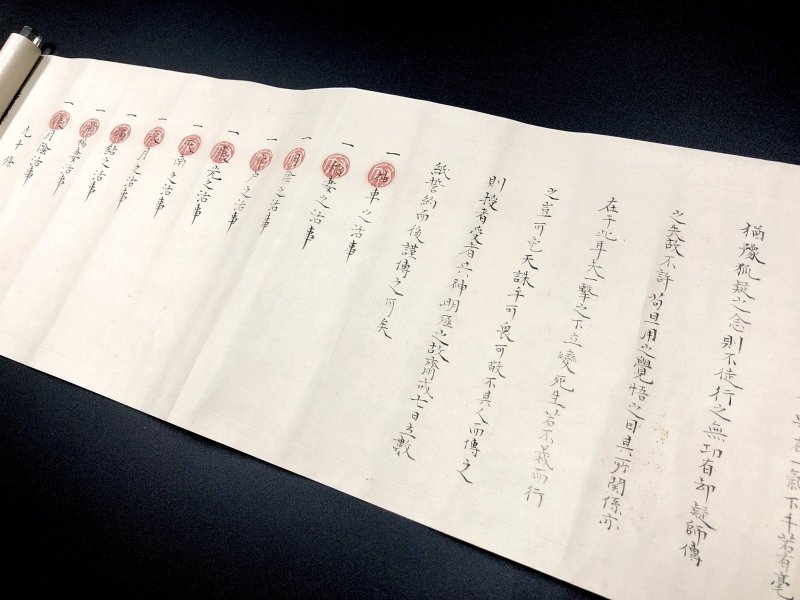 有一氣下手若有毫
猶豫狐疑之念則不徒行之無功有却疑師傳
之矣故不許苟且用之覺悟之目具所關係亦
在于此耳夫一擊之下立變死生若不義而行
之豈可免天誅乎可畏可敬不具人而傳之
則授者受者共神明殛之故齋戒七日立數
紙誓約而後謹傳之可矣
一 車之活事
一 妻之活事
一 月之活事
一 之活事
一 元之活事
一 南之活事
一 月之活事
一 點之活事
一 活事
一 月陰活事
凡十條